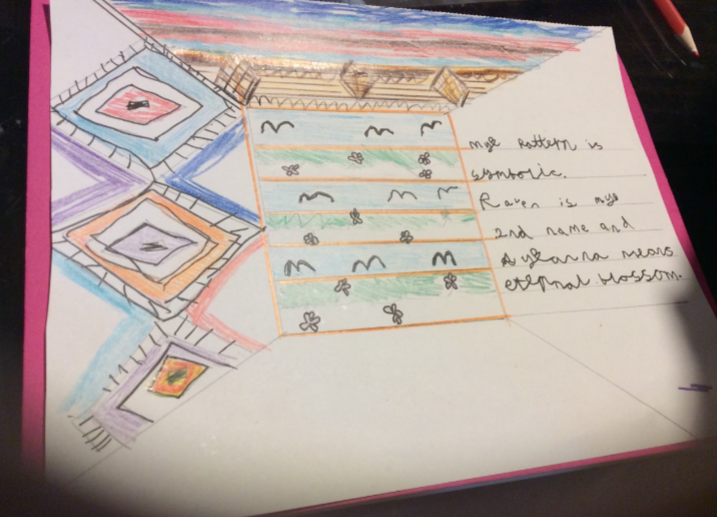 mye Pattern is
symbolic.
Raven is mye
2nd name and
Ayeanna means
eternal blossom.